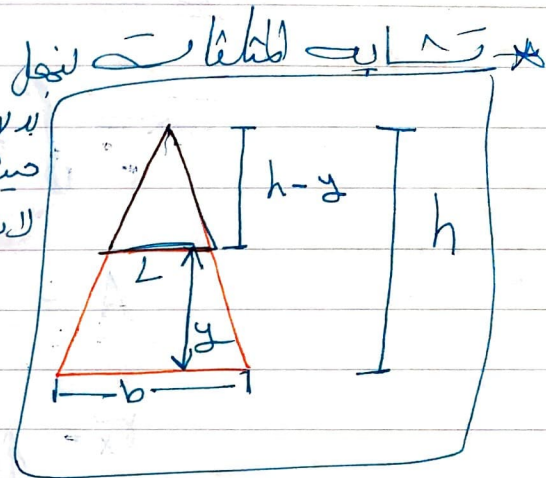 * تشابه المثلثات لنجعل
h-y
h
L
y
b